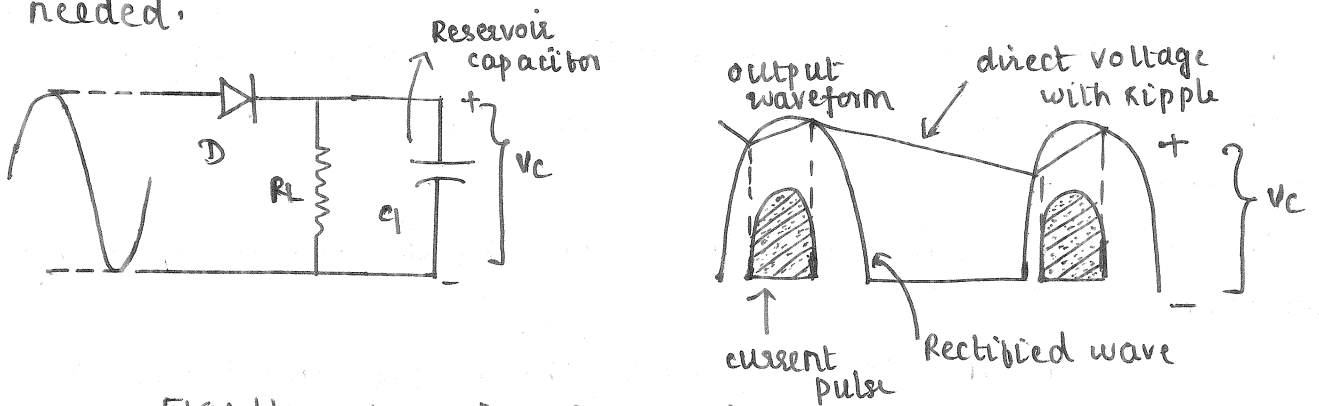 needed.
Reservoir
capacitor
+
D
RL
C1
VC
-
output
waveform
direct voltage
with ripple
+
VC
-
current
pulse
Rectified wave